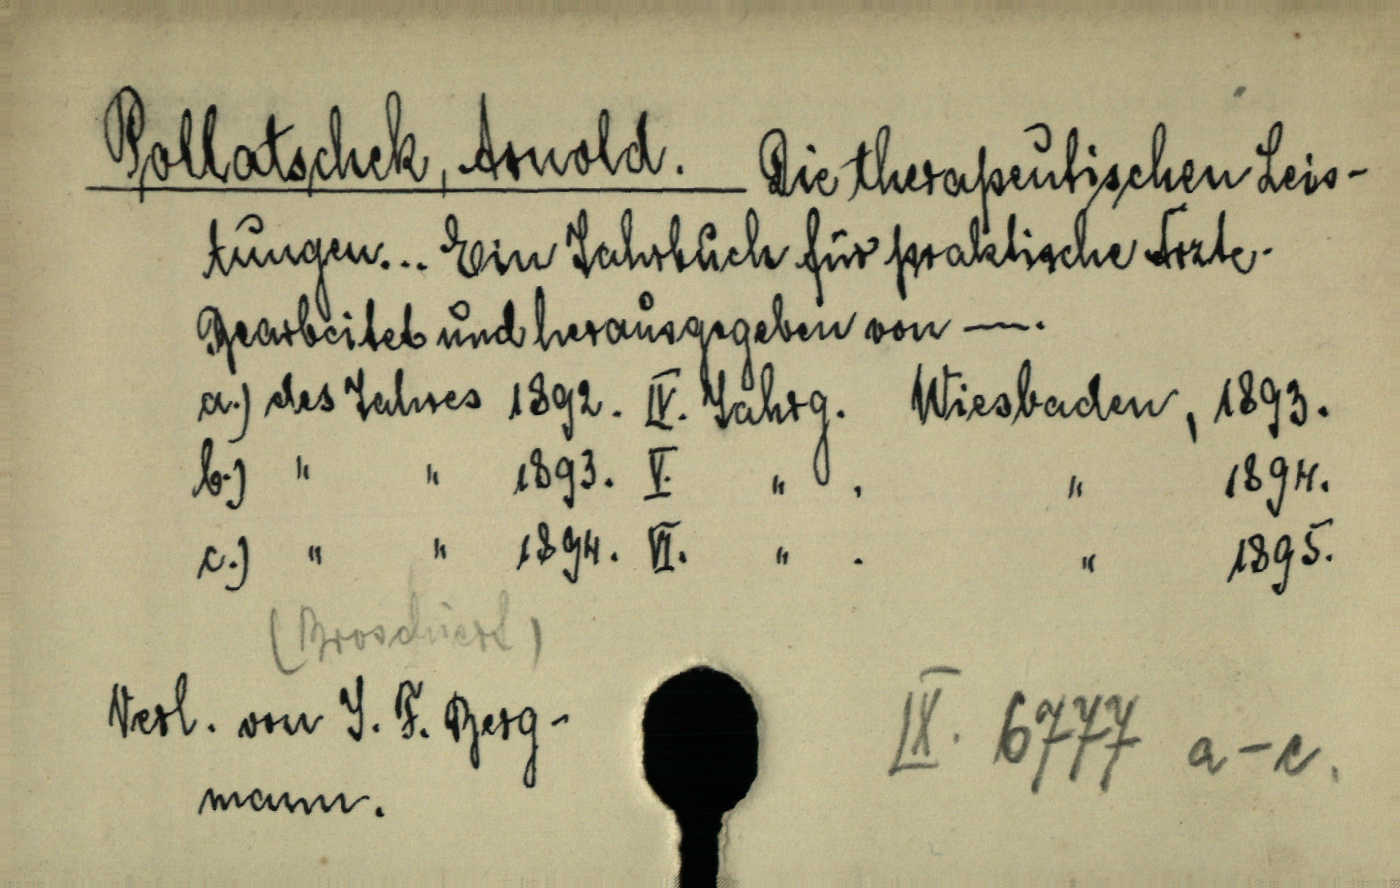 Pollatschek, Arnold. Die therapeutischen Leis-
tungen... Ein Jahrbuch für praktische Ärzte.
Bearbeitet und herausgegeben von —.
a.) des Jahres 1892. IV. Jahrg. Wiesbaden, 1893.
b.) " " 1893. V. " . " 1894.
c.) " " 1894. VI. " . " 1895.
(Broschiert)
Verl. von J. F. Berg-
mann.
IX. 6777 a-c.